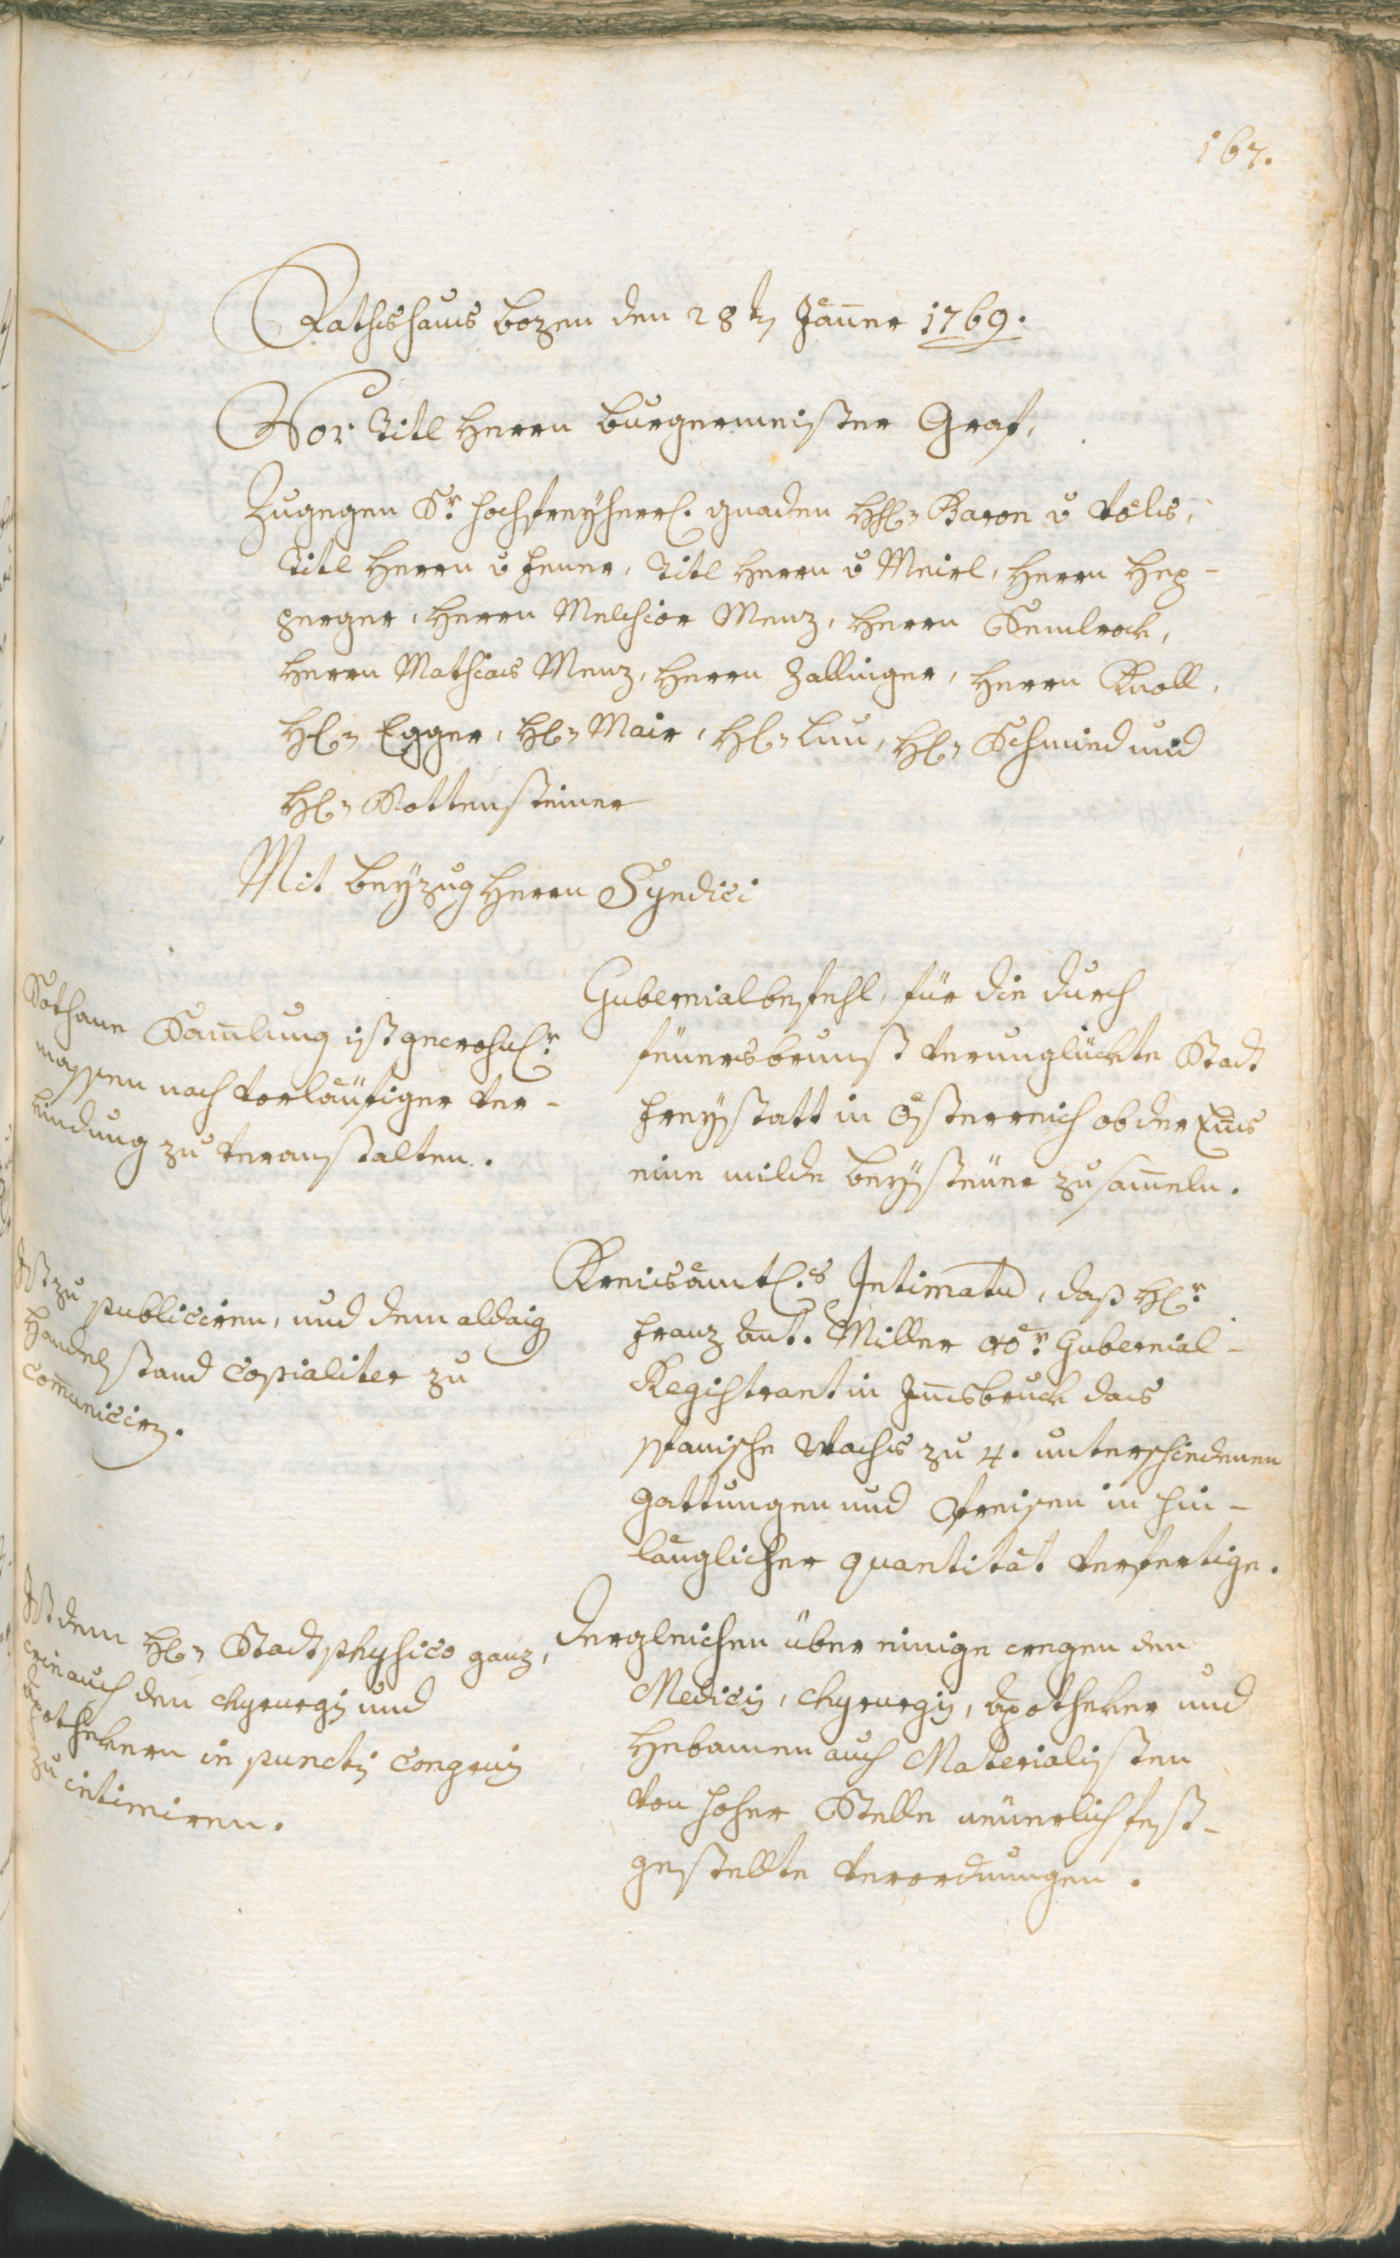 167.
Rathshaus bozen den 28tn Jäner 1769.
Vor Titl Herrn burgermeister Graf,
Zugegen Sr. hochfreyherrl. gnaden HHl. Baron v Völs,
Titl Herrn v Hener, Titl Herrn v Meirl, Herrn Hep-
perger, Herrn Melchior Menz, Herrn Gemlrock,
Herrn Mathias Menz, Herrn Zallinger, Herrn Knoll,
Hl. Egger, Hl. Mair, Hl. Luu, Hl. Schmied und
Hl. Rottensteiner
Mit beyzug Herrn Syndici
Gubernialbefehl, für die durch
feüersbrunst verunglückte Stadt
Freystatt in Österreich ob der Ens
eine milde beysteüer zu sameln.
Sothane Samlung ist gewohnl.r
massen nach vorläufiger Ver-
kündung zu veranstalten.
Kreisämtl.s Intimatu, daß Hl.r
Franz Ant. Miller oö.r Gubernial-
Registrant in Insbruck das
spanische Wachs zu 4. unterschiedenen
gattungen und Preisen in hin-
länglicher quantität verfertige.
Ist zu publiciren, und dem aldaig
Handelstand copialiter zu
comunicirn.
Dergleichen über einige wegen den
Medicis, chyrurgis, Apotheker und
Hebamen auch Materialisten
von hoher Stelle neüerlich fest-
gestellte Verordnungen.
Ist dem Hl. Stadtphysico ganz,
wie auch den chyrurgis und
Apothekern in punctis congruis
zu intimiren.